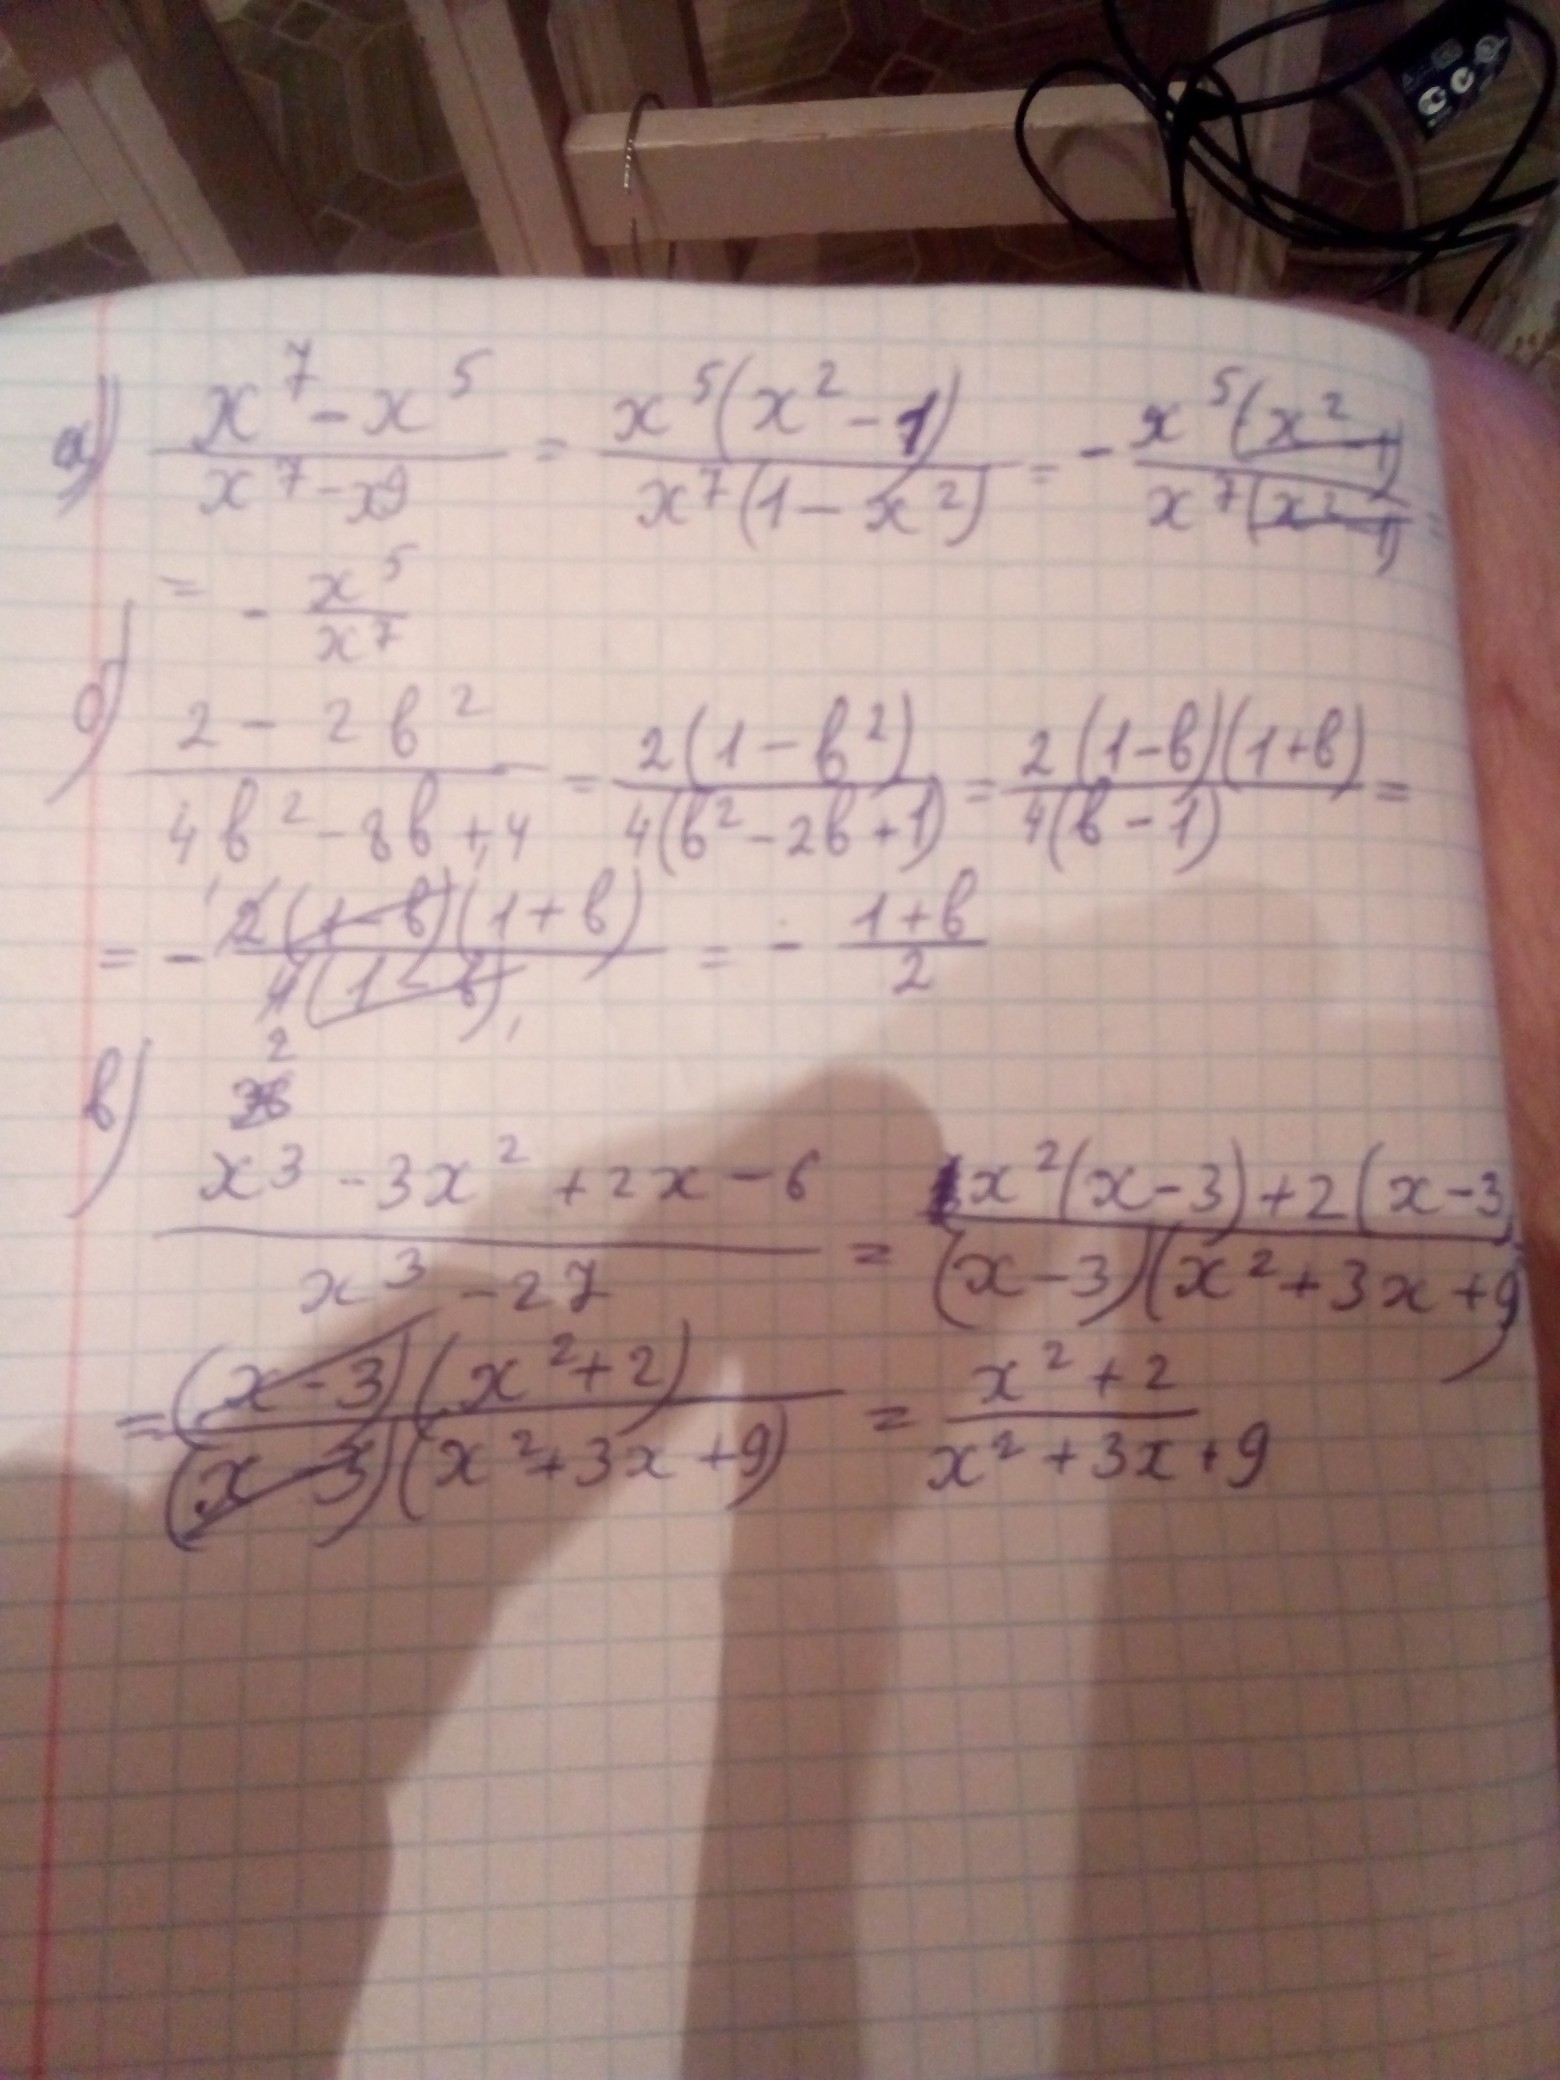 а) x⁷ - x⁵ / x⁷ - x9 = x⁵(x² - 1) / x⁷(1 - x²) = - x⁵(x² - 1) / x⁷(x² - 1) =
= - x⁵ / x⁷
б) 2 - 2в² / 4в² - 8в + 4 = 2(1 - в²) / 4(в² - 2в + 1) = 2(1 - в)(1 + в) / 4(в - 1) =
= - 2(1 - в)(1 + в) / 4(1 - в) = - 1 + в / 2
2
в) x³ - 3x² + 2x - 6 / x³ - 27 = x²(x - 3) + 2(x - 3 / (x - 3)(x² + 3x + 9)
= (x - 3)(x² + 2) / (x - 3)(x² + 3x + 9) = x² + 2 / x² + 3x + 9